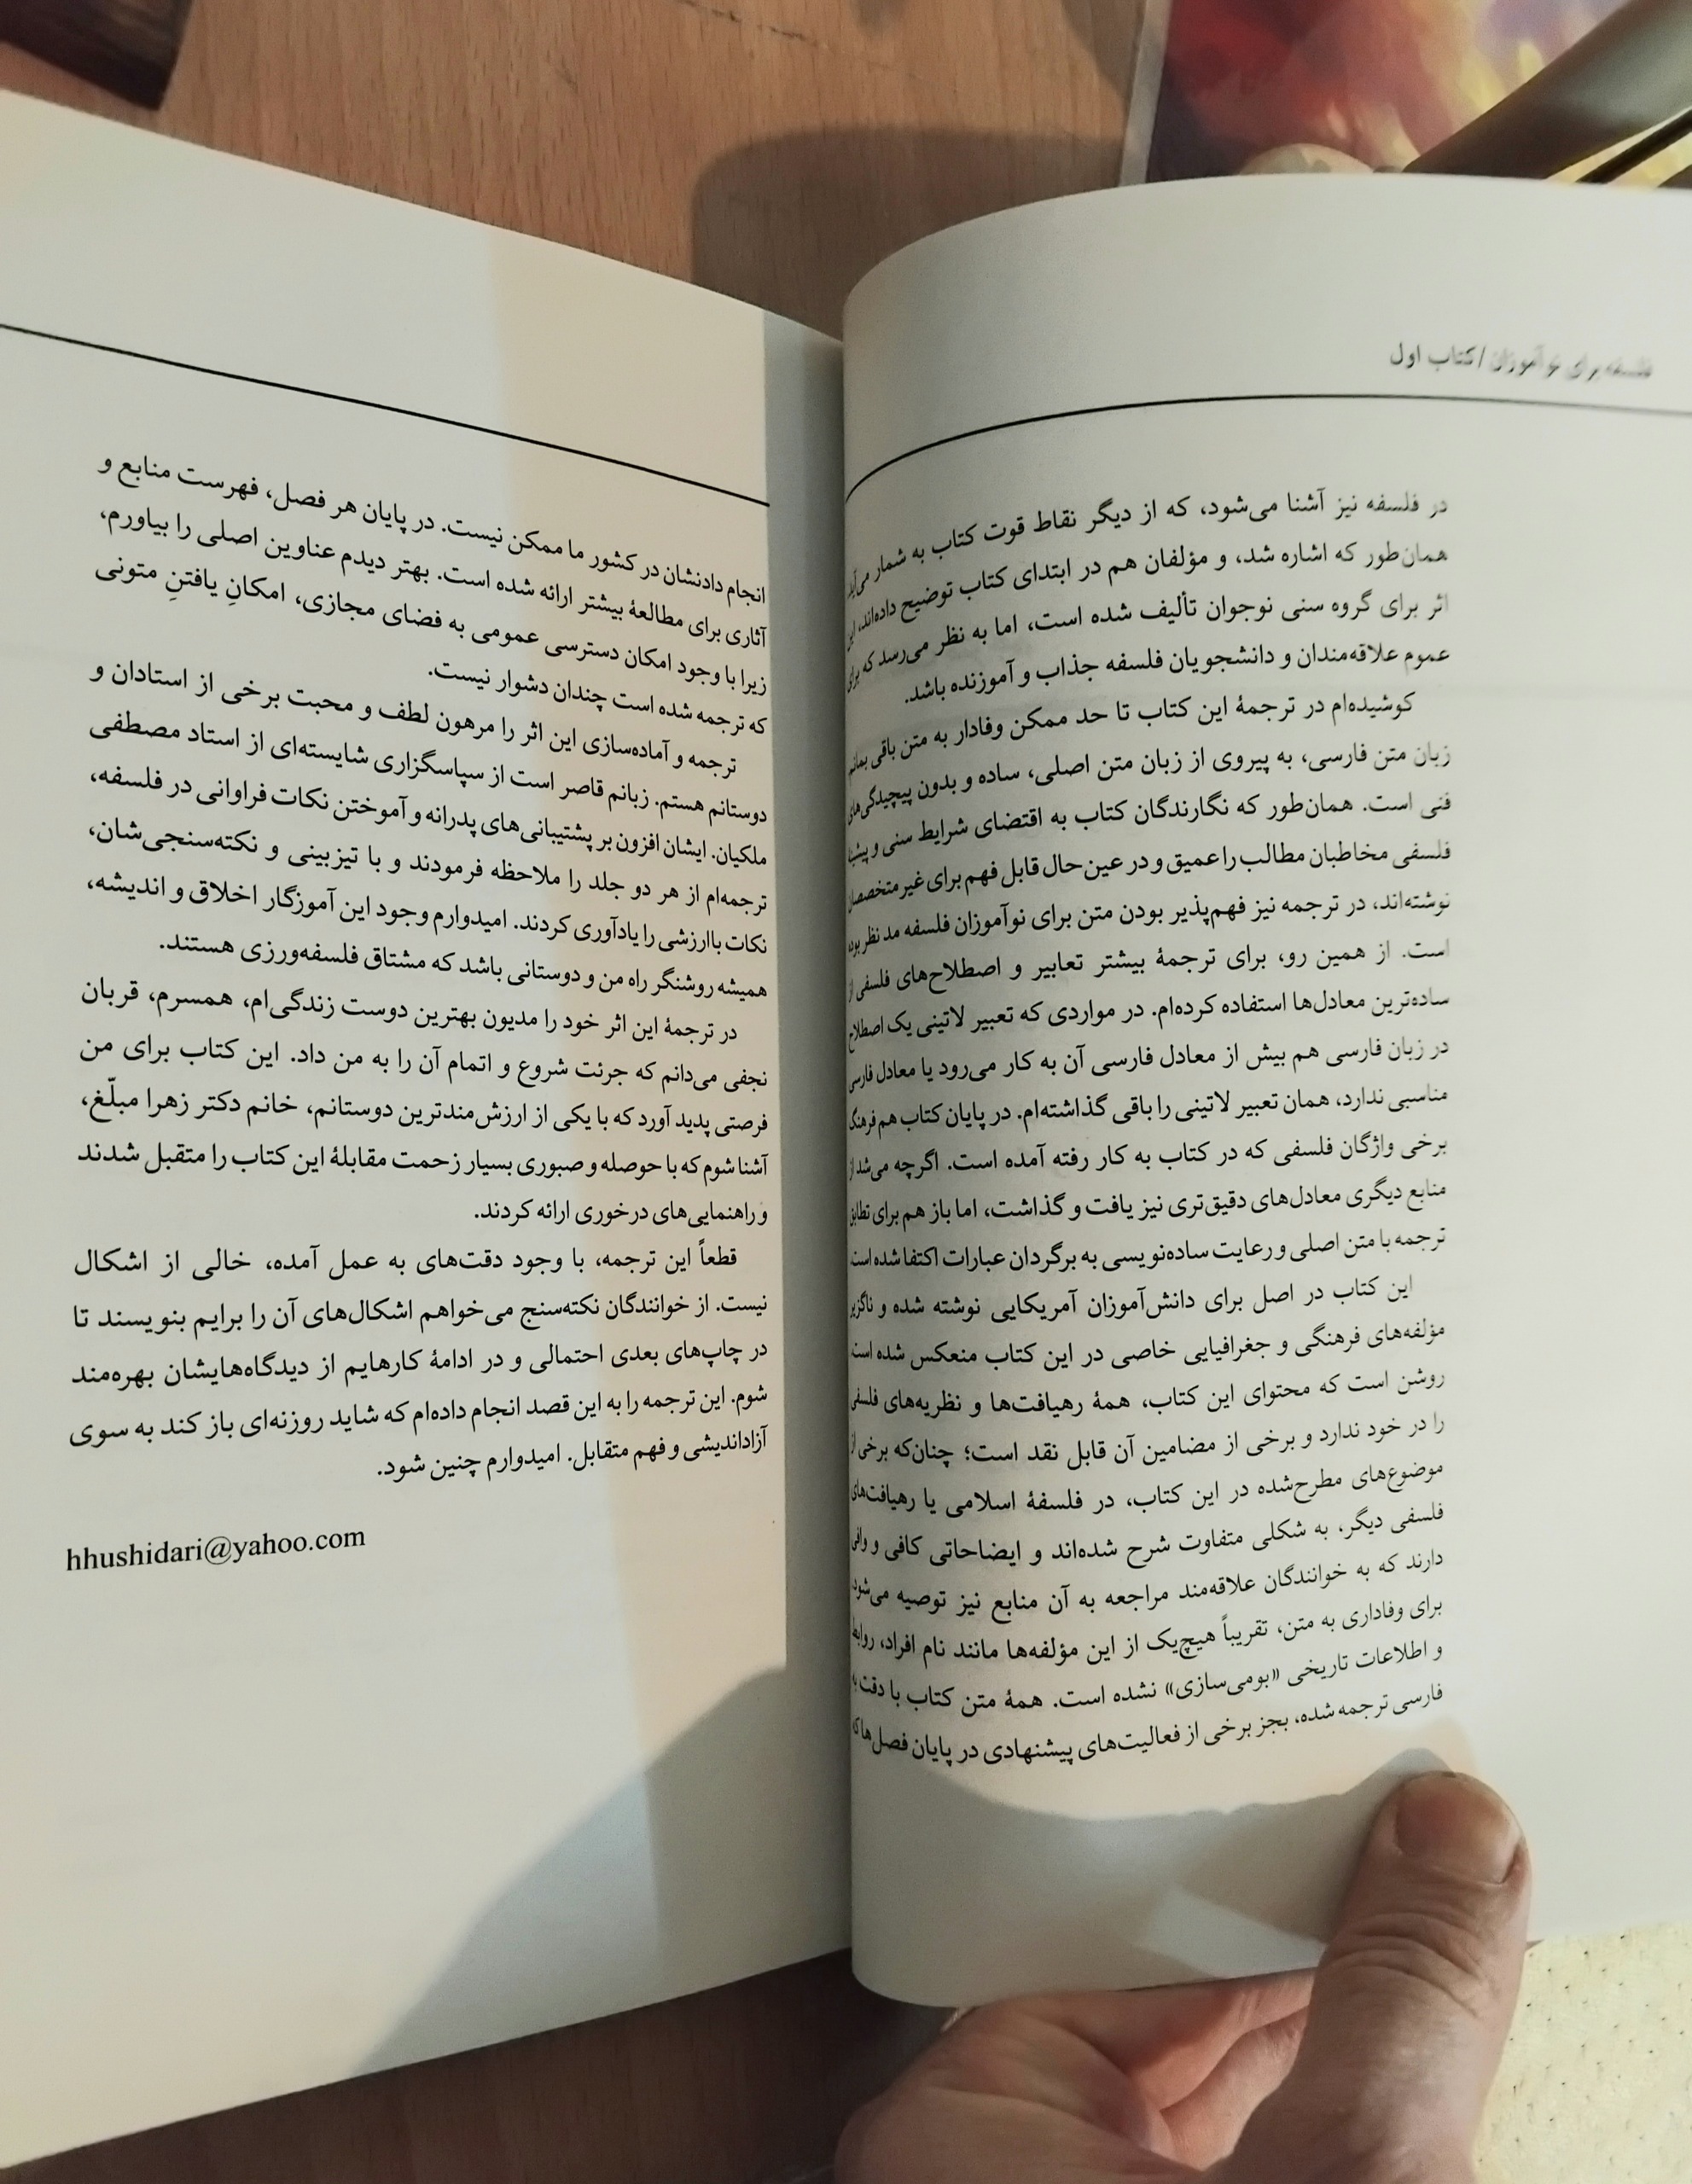 فلسفه برای نوآموزان / کتاب اول
در فلسفه نیز آشنا می‌شود، که از دیگر نقاط قوت کتاب به شمار می‌آید.
همان‌طور که اشاره شد، و مؤلفان هم در ابتدای کتاب توضیح داده‌اند، این
اثر برای گروه سنی نوجوان تألیف شده است، اما به نظر می‌رسد که برای
عموم علاقه‌مندان و دانشجویان فلسفه جذاب و آموزنده باشد.
کوشیده‌ام در ترجمهٔ این کتاب تا حد ممکن وفادار به متن باقی بمانم.
زبان متن فارسی، به پیروی از زبان متن اصلی، ساده و بدون پیچیدگی‌های
فنی است. همان‌طور که نگارندگان کتاب به اقتضای شرایط سنی و
فلسفی مخاطبان مطالب را عمیق و در عین حال قابل فهم برای غیرمتخصصان
نوشته‌اند، در ترجمه نیز فهم‌پذیر بودن متن برای نوآموزان فلسفه مد نظر بوده
است. از همین رو، برای ترجمهٔ بیشتر تعابیر و اصطلاح‌های فلسفی از
ساده‌ترین معادل‌ها استفاده کرده‌ام. در مواردی که تعبیر لاتینی یک اصطلاح
در زبان فارسی هم بیش از معادل فارسی آن به کار می‌رود یا معادل فارسی
مناسبی ندارد، همان تعبیر لاتینی را باقی گذاشته‌ام. در پایان کتاب هم فرهنگ
برخی واژگان فلسفی که در کتاب به کار رفته آمده است. اگرچه می‌شد از
منابع دیگری معادل‌های دقیق‌تری نیز یافت و گذاشت، اما باز هم برای تطابق
ترجمه با متن اصلی و رعایت ساده‌نویسی به برگردان عبارات اکتفا شده است.
این کتاب در اصل برای دانش‌آموزان آمریکایی نوشته شده و ناگزیر
مؤلفه‌های فرهنگی و جغرافیایی خاصی در این کتاب منعکس شده است.
روشن است که محتوای این کتاب، همهٔ رهیافت‌ها و نظریه‌های فلسفی
را در خود ندارد و برخی از مضامین آن قابل نقد است؛ چنان‌که برخی از
موضوع‌های مطرح‌شده در این کتاب، در فلسفهٔ اسلامی یا رهیافت‌های
فلسفی دیگر، به شکلی متفاوت شرح شده‌اند و ایضاحاتی کافی و وافی
دارند که به خوانندگان علاقه‌مند مراجعه به آن منابع نیز توصیه می‌شود.
برای وفاداری به متن، تقریباً هیچ‌یک از این مؤلفه‌ها مانند نام افراد، روابط
و اطلاعات تاریخی «بومی‌سازی» نشده است. همهٔ متن کتاب با دقت به
فارسی ترجمه شده، بجز برخی از فعالیت‌های پیشنهادی در پایان فصل‌ها که
انجام دادنشان در کشور ما ممکن نیست. در پایان هر فصل، فهرست منابع و
آثاری برای مطالعهٔ بیشتر ارائه شده است. بهتر دیدم عناوین اصلی را بیاورم،
زیرا با وجود امکان دسترسی عمومی به فضای مجازی، امکانِ یافتنِ متونی
که ترجمه شده است چندان دشوار نیست.
ترجمه و آماده‌سازی این اثر را مرهون لطف و محبت برخی از استادان و
دوستانم هستم. زبانم قاصر است از سپاسگزاری شایسته‌ای از استاد مصطفی
ملکیان. ایشان افزون بر پشتیبانی‌های پدرانه و آموختن نکات فراوانی در فلسفه،
ترجمه‌ام از هر دو جلد را ملاحظه فرمودند و با تیزبینی و نکته‌سنجی‌شان،
نکات باارزشی را یادآوری کردند. امیدوارم وجود این آموزگار اخلاق و اندیشه،
همیشه روشنگر راه من و دوستانی باشد که مشتاق فلسفه‌ورزی هستند.
در ترجمهٔ این اثر خود را مدیون بهترین دوست زندگی‌ام، همسرم، قربان
نجفی می‌دانم که جرئت شروع و اتمام آن را به من داد. این کتاب برای من
فرصتی پدید آورد که با یکی از ارزش‌مندترین دوستانم، خانم دکتر زهرا مبلّغ،
آشنا شوم که با حوصله و صبوری بسیار زحمت مقابلهٔ این کتاب را متقبل شدند
و راهنمایی‌های درخوری ارائه کردند.
قطعاً این ترجمه، با وجود دقت‌های به عمل آمده، خالی از اشکال
نیست. از خوانندگان نکته‌سنج می‌خواهم اشکال‌های آن را برایم بنویسند تا
در چاپ‌های بعدی احتمالی و در ادامهٔ کارهایم از دیدگاه‌هایشان بهره‌مند
شوم. این ترجمه را به این قصد انجام داده‌ام که شاید روزنه‌ای باز کند به سوی
آزاداندیشی و فهم متقابل. امیدوارم چنین شود.
hhushidari@yahoo.com